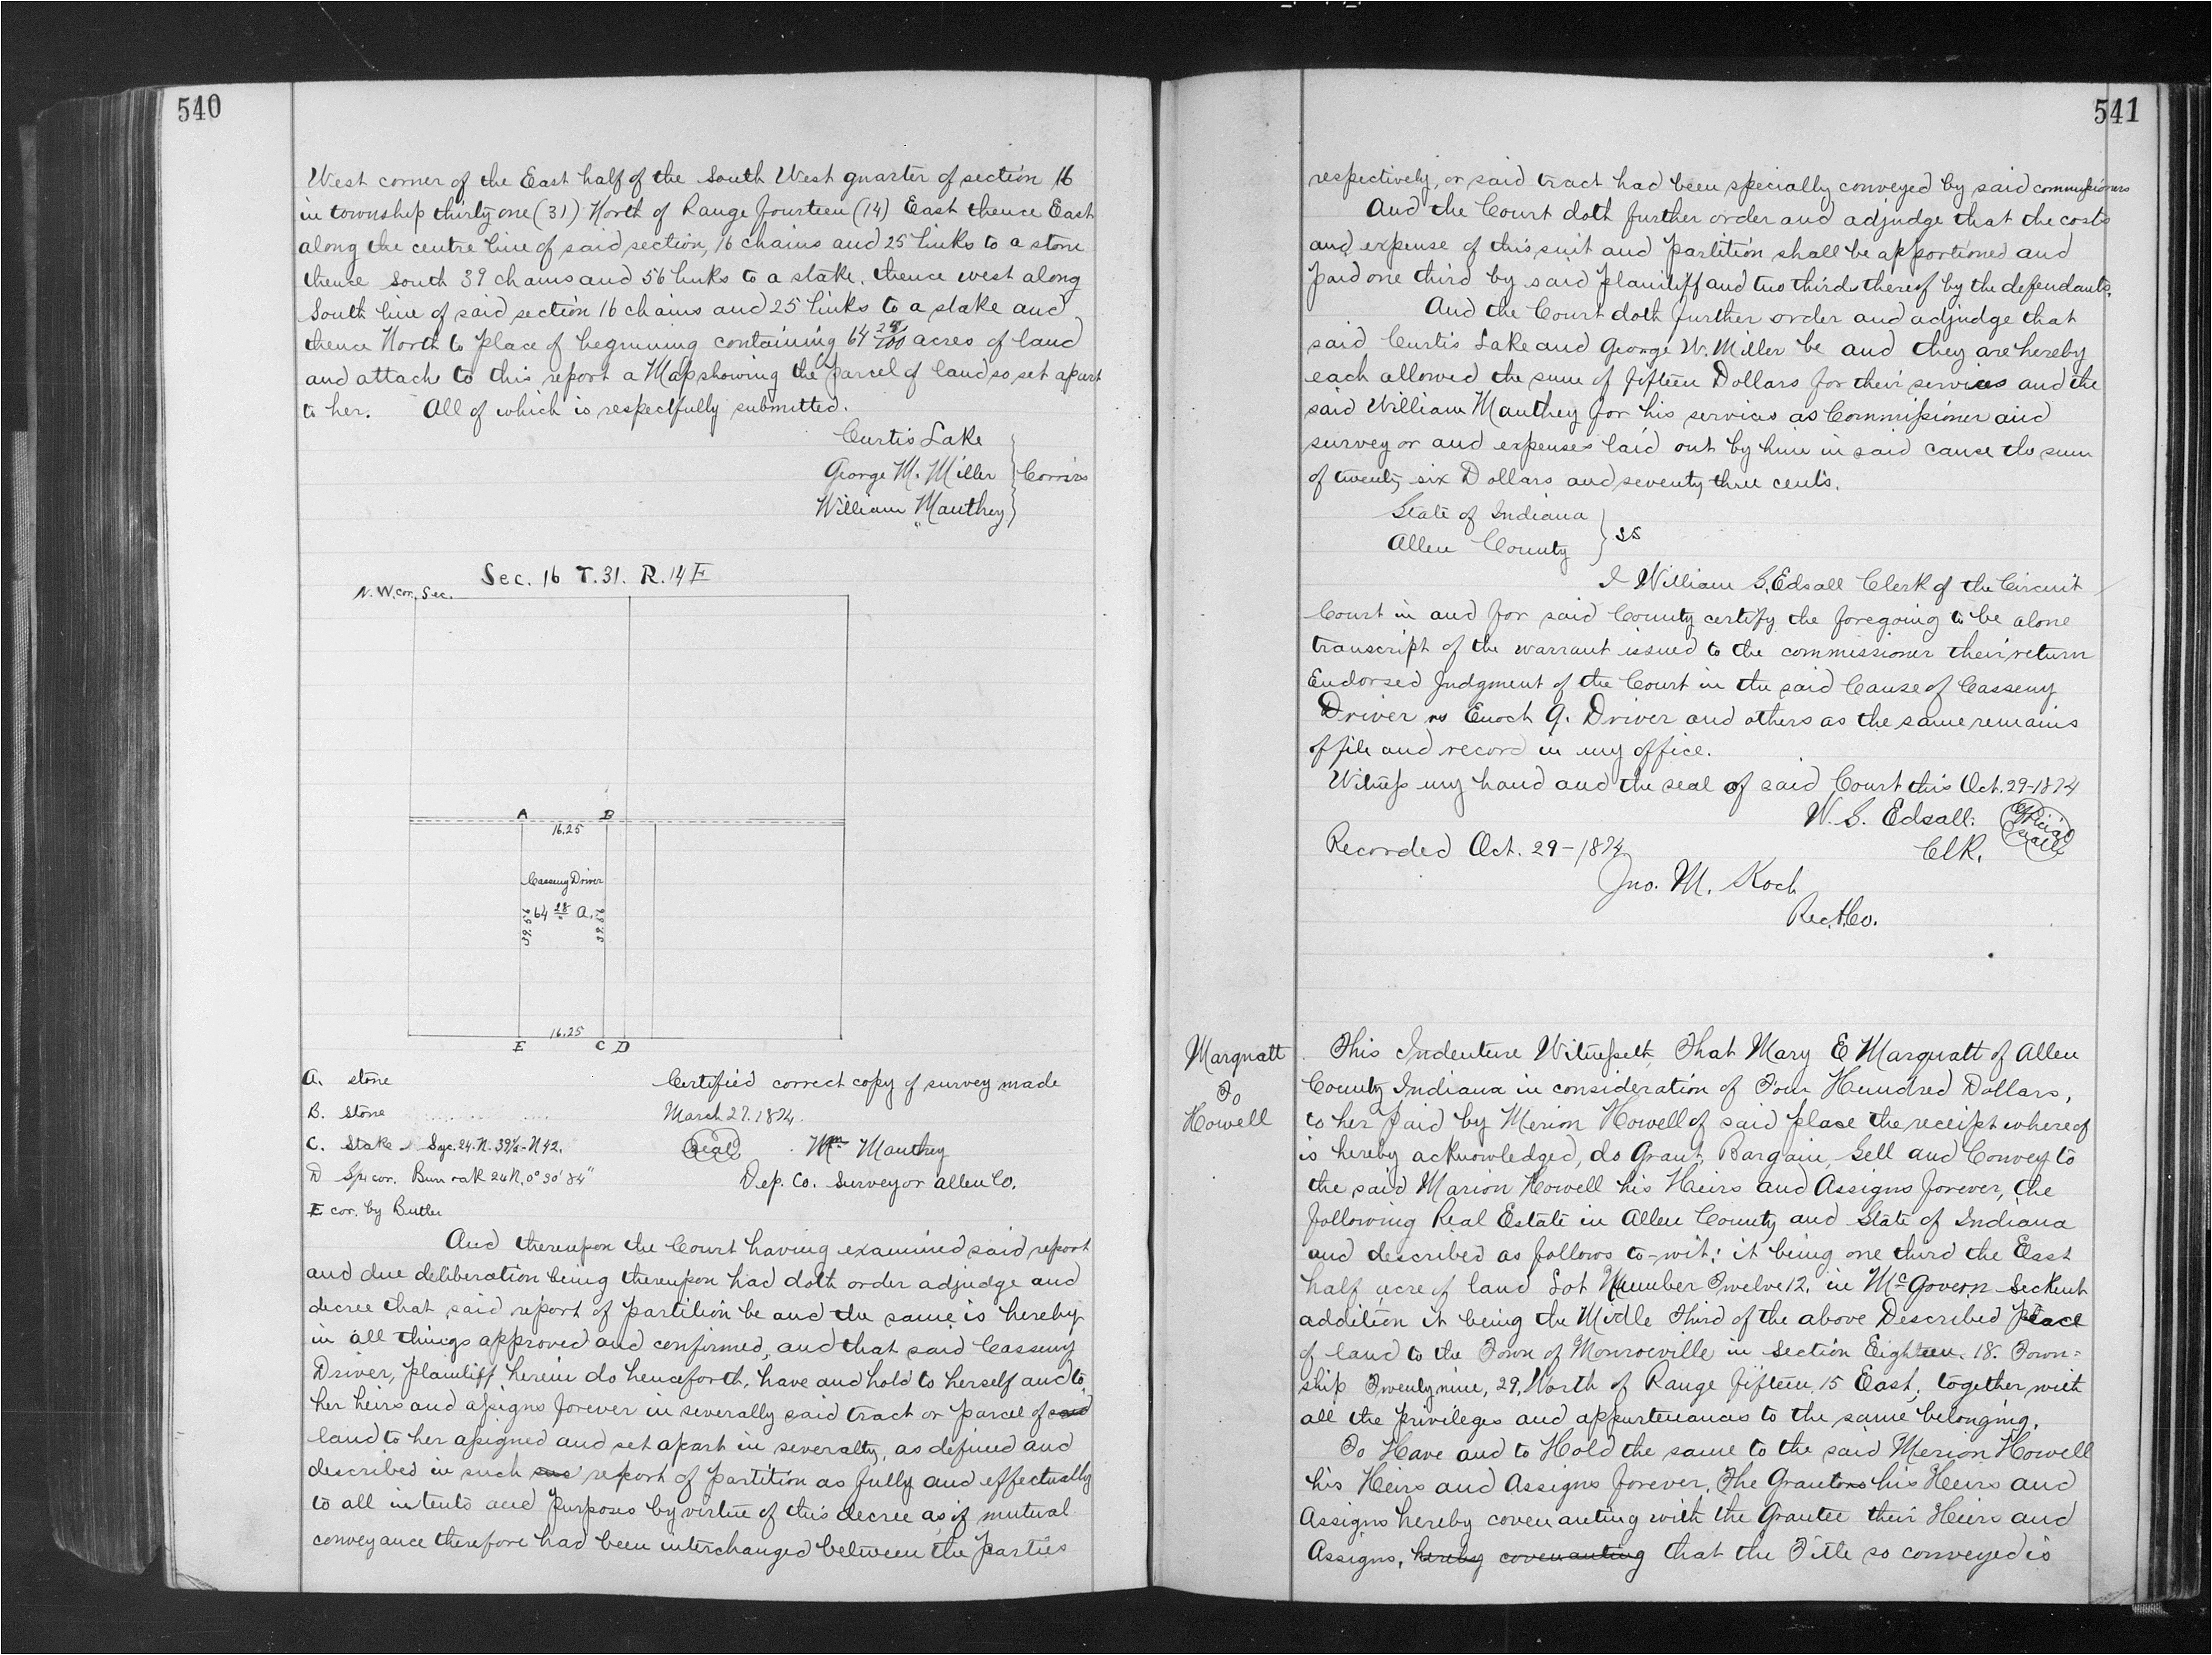 540
West corner of the East half of the South West quarter of section 16
in township thirty one (31) North of Range fourteen (14) East thence East
along the centre line of said section, 16 chains and 25 links to a stone
thence South 39 chains and 56 links to a stake, thence west along
South line of said section 16 chains and 25 links to a stake and
thence North to place of beginning containing 64 28/100 acres of land
and attach to this report a Map showing the parcel of land so set apart
to her. All of which is respectfully submitted.
Curtis Lake
George M. Miller
William Mauthey
Sec. 16 T. 31. R. 14 E
N.W. cor. Sec.
A B
16.25
Casseny Driver
64 28 A.
39.56 39.56
16.25
E C D
A. stone
B. stone
C. Stake - Syc. 24. N. 39½ - N 42.
D
E cor. by Butler
Certified correct copy of survey made
March 27. 1874.
Seal Wm Mauthey
Dep. Co. Surveyor Allen Co.
And thereupon the Court having examined said report
and due deliberation being thereupon had doth order adjudge and
decree that said report of partition be and the same is hereby
in all things approved and confirmed, and that said Casseny
Driver, plaintiff herein do henceforth, have and hold to herself and to
her heirs and assigns forever in severally said tract or parcel of said
land to her assigned and set apart in severalty, as defined and
described in such report of partition as fully and effectually
to all intents and purposes by virtue of this decree as if mutual
conveyance therefore had been interchanged between the parties
541
respectively, or said tract had been specially conveyed by said commissioners
And the Court doth further order and adjudge that the costs
and expense of this suit and partition shall be apportioned and
paid one third by said plaintiff and two thirds thereof by the defendants.
And the Court doth further order and adjudge that
said Curtis Lake and George W. Miller be and they are hereby
each allowed the sum of fifteen Dollars for their services and the
said William Mauthey for his services as Commissioner and
surveyor and expenses laid out by him in said cause the sum
of twenty six Dollars and seventy three cents.
State of Indiana
Allen County } SS
I William S. Edsall Clerk of the Circuit
Court in and for said County certify the foregoing to be alone
transcript of the warrant issued to the commissioner their return
Endorsed Judgment of the Court in the said Cause of Casseny
Driver vs Enoch G. Driver and others as the same remains
of file and record in my office.
Witness my hand and the seal of said Court this Oct. 29-1874
W. S. Edsall. Official Seal
Clk.
Recorded Oct. 29-1874
Jno. M. Koch
Rec. A. Co.
Marquatt
To
Howell
This Indenture Witnesseth, That Mary E Marquatt of Allen
County Indiana in consideration of Four Hundred Dollars,
to her paid by Merion Howell of said place the receipt whereof
is hereby acknowledged, do Grant, Bargain, Sell and Convey to
the said Marion Howell his Heirs and Assigns forever, the
following Real Estate in Allen County and State of Indiana
and described as follows to-wit: it being one third the East
half acre of land Lot Number Twelve 12. in McGovern Seckent
addition it being the Midle Third of the above Described place
of land to the Town of Monroeville in Section Eighteen. 18. Town=
ship Twenty nine, 29, North of Range fifteen 15 East, together with
all the privileges and appurtenances to the same belonging.
To Have and to Hold the same to the said Merion Howell
his Heirs and Assigns forever, The Grantors his Heirs and
Assigns hereby covenanting with the Grantee their Heirs and
Assigns, hereby covenanting that the Title so conveyed is